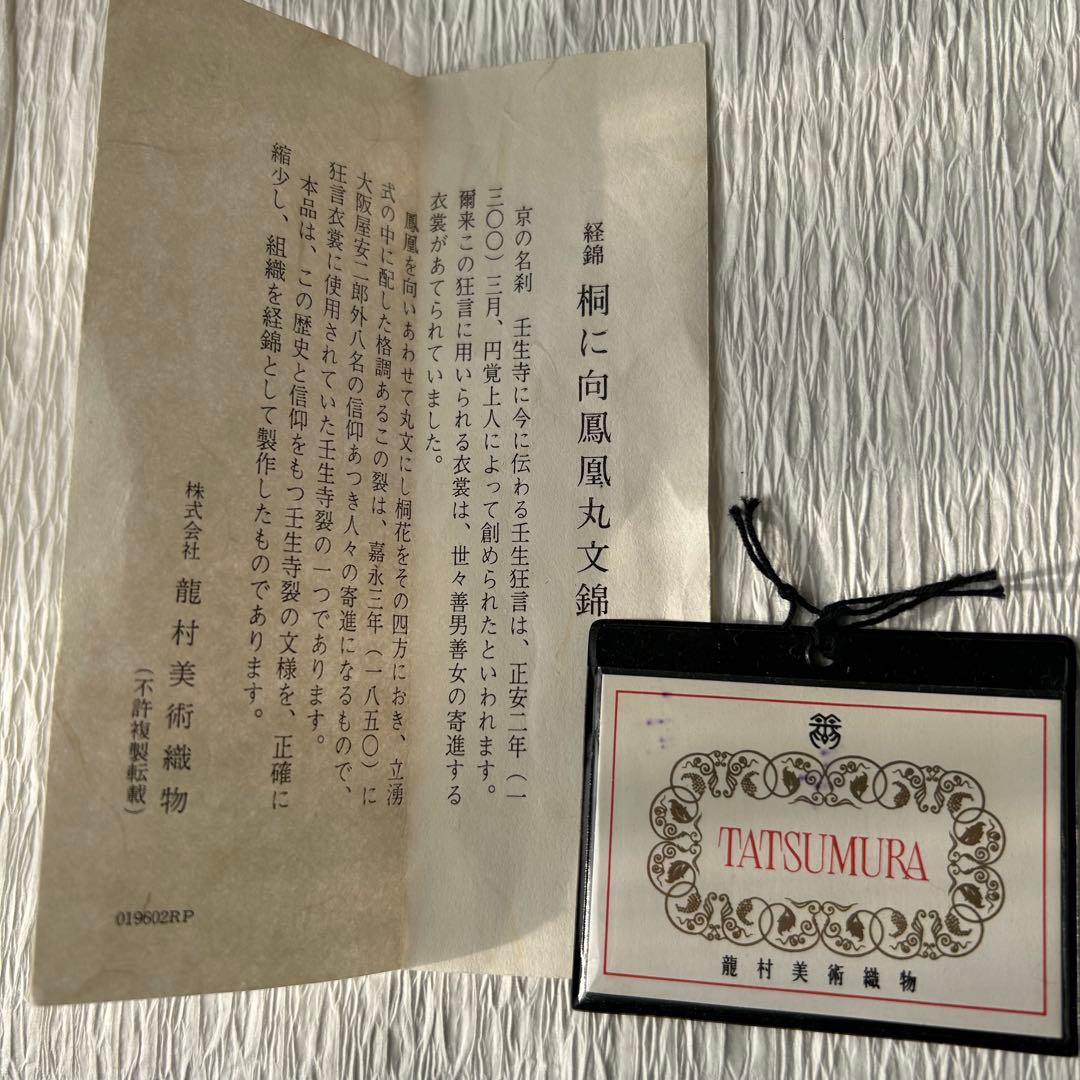 経錦 桐に向鳳凰丸文錦
京の名刹 壬生寺に今に伝わる壬生狂言は、正安二年(一
三〇〇)三月、円覚上人によって創められたといわれます。
爾来この狂言に用いられる衣裳は、世々善男善女の寄進する
衣裳があてられていました。
鳳凰を向いあわせて丸文にし桐花をその四方におき、立湧
式の中に配した格調あるこの裂は、嘉永三年(一八五〇)に
大阪屋安二郎外八名の信仰あつき人々の寄進になるもので、
狂言衣裳に使用されていた壬生寺裂の一つであります。
本品は、この歴史と信仰をもつ壬生寺裂の文様を、正確に
縮少し、組織を経錦として製作したものであります。
株式会社 龍村美術織物
(不許複製転載)
019602RP
TATSUMURA
龍村美術織物